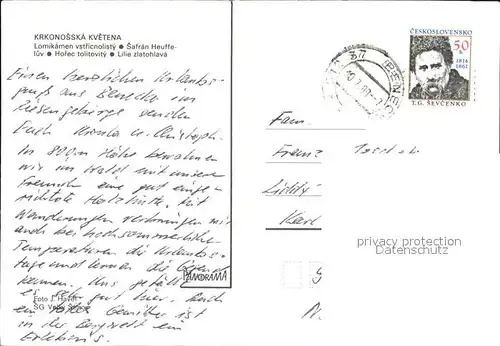 KRKONOŠSKÁ KVĚTENA
Lomikámen vstřícnolistý ● Šafrán Heuffe-
lův ● Hořec tolitovitý ● Lilie zlatohlavá
Einen herzlichen Urlaubs-
gruß aus Benecko im
Riesengebirge senden
Euch Monika u. Christoph.
In 800m Höhe bewohnen
wir im Wald mit unseren
Freunden eine gut einge-
richtete Holzhütte. Mit
Wanderungen verbringen wir
auch bei hochsommerlichen
Temperaturen die Urlaubs-
tage und lernen die
kennen. Uns gefällt
es gut hier. Auch
ein Gewitter ist
in der Bergwelt ein
Erlebnis.
PANORAMA
Foto J. Havel
SG
ČESKOSLOVENSKO
50 h
1814
1861
T. G. ŠEVČENKO
37
Fam.
Franz
Karl
privacy protection
Datenschutz